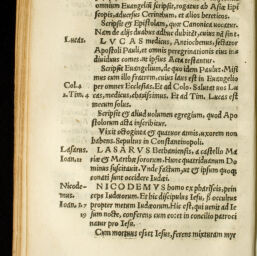 omnium Euangeliũ scripsit, rogatus ab Asiæ Epi
scopis, aduersus Cerinthum, et alios hereticos.
Scripsit & Epistolam, quæ Canonica uocatur.
Nam de alijs duabus adhuc dubitãt, cuius nã sint.
Lucas. LVCAS medicus, Antiochensis, sectator
Apostoli Pauli, et omnis peregrinationis eius in
diuiduus comes ut ipsius Acta testantur.
Scripsit Euangelium, de quo idem Paulus. Misi
mus cum illo fratrem, cuius laus est in Euangelio
Col. 4 per omnes Ecclesias. Et ad Colo. Salutat uos Lu
2. Tim. 4 cas, medicus, charissimus. Et ad Tim. Lucas est
mecum solus.
Scripsit & aliud uolumen egregium, quod Apo
stolorum acta inscribitur.
Vixit octoginta & quatuor annis, uxorem non
habens. Sepultus in Constantinopoli.
Lasarus. LASARVS Bethaniensis, a castello Ma
Ioan. 11 riæ et Marthæ sororum. Hunc quatriduanum Do
minus suscitauit. Vnde factum, ut & ipsum quoq;
conati sunt occidere Iudæi.
Nicode- NICODEMVS homo ex pharisæis, prin
mus. ceps Iudæorum. Et hic discipulus Iesu, sed occultus
Ioan. 3. 7 propter metum Iudæorum. Hic est, qui uenit ad Ie
19 sum nocte, conferens cum eo et in concilio patroci
natur pro Iesu.
Cum mortuus esset Iesus, ferens mixturam myr